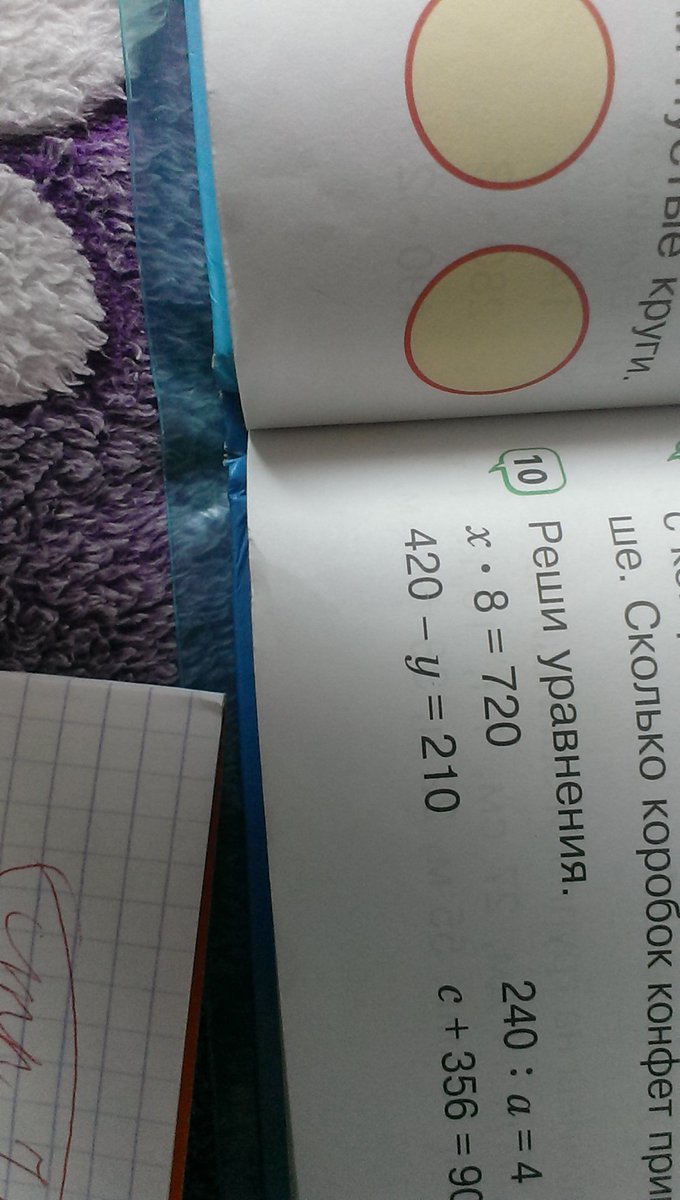 круги,
ше. Сколько коробок конфет
10 Реши уравнения.
x · 8 = 720 240 : a = 4
420 − y = 210 c + 356 =